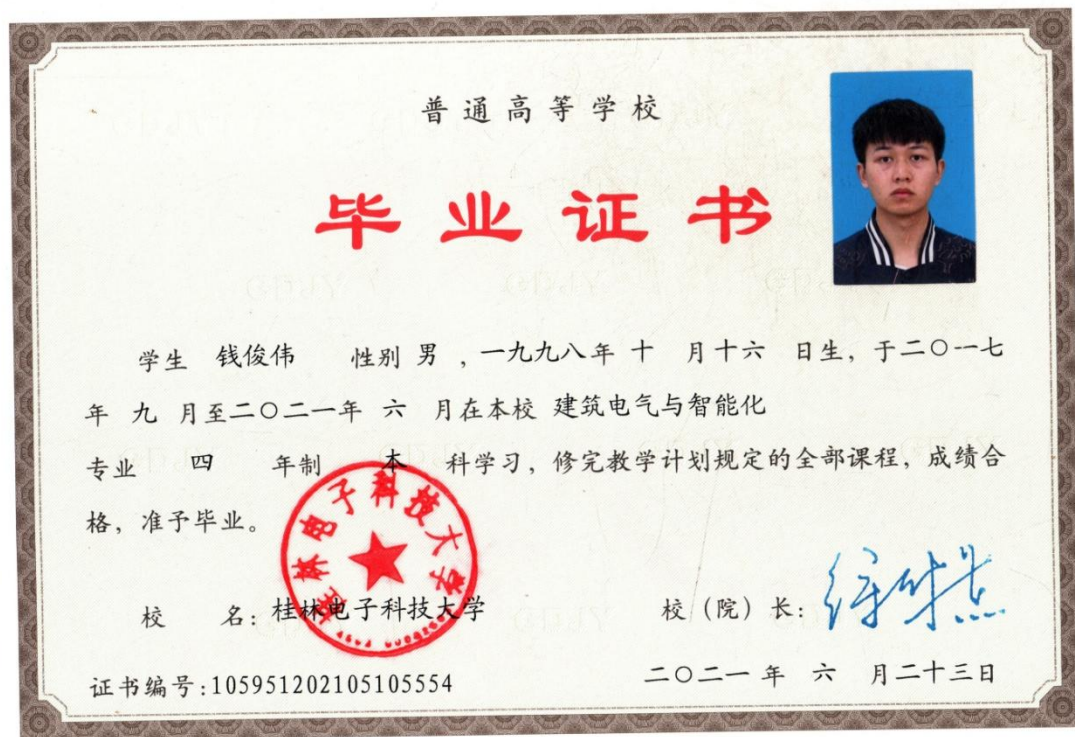 普通高等学校
毕业证书
学生 钱俊伟 性别 男 ,一九九八年 十 月十六 日生,于二〇一七
年 九 月至二〇二一年 六 月在本校 建筑电气与智能化
专业 四 年制 本 科学习,修完教学计划规定的全部课程,成绩合
格,准予毕业。
桂林电子科技大学
校 名:桂林电子科技大学 校(院)长:
证书编号:105951202105105554 二〇二一 年 六 月二十三日